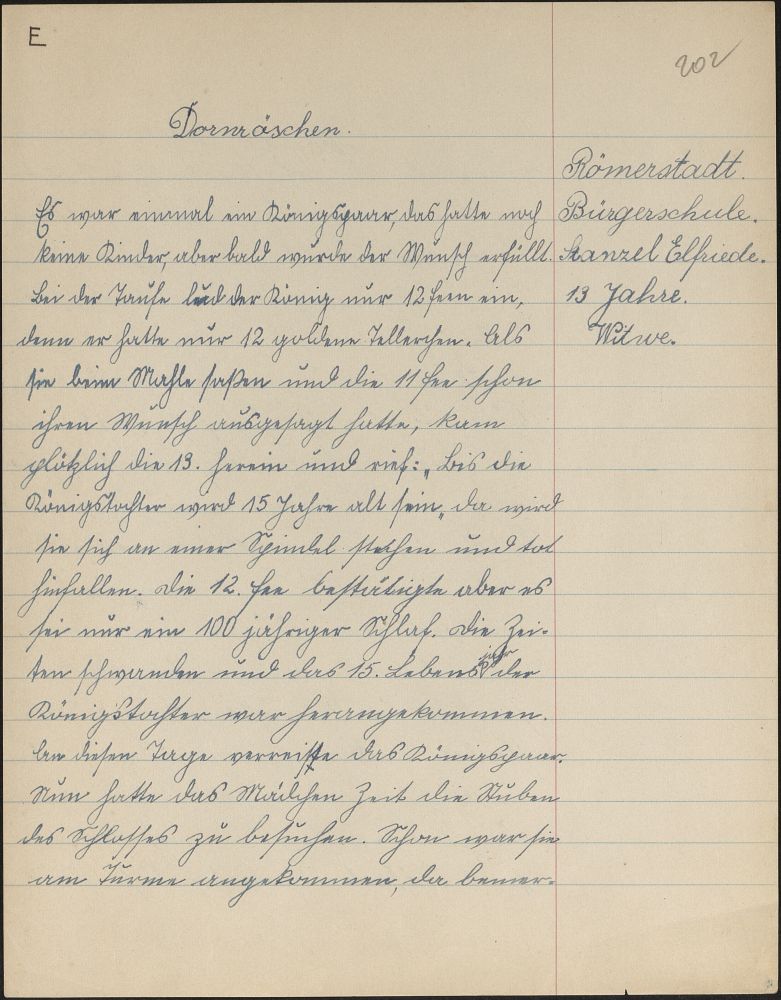 E
202
Dornröschen.
Römerstadt.
Bürgerschule.
Stanzel Elfriede.
13 Jahre.
Witwe.
Es war einmal ein Königspaar, das hatte noch
keine Kinder, aber bald wurde der Wunsch erfüllt.
Bei der Taufe lud der König nur 12 Feen ein,
denn er hatte nur 12 goldene Tellerchen. Als
sie beim Mahle saßen und die 11 Fee schon
ihren Wunsch ausgesagt hatte, kam
plötzlich die 13. herein und rief: „Bis die
Königstochter wird 15 Jahre alt sein„ da wird
sie sich an einer Spindel stechen und tot
hinfallen. Die 12. Fee bestätigte aber es
sei nur ein 100 jähriger Schlaf. Die Zei-
ten schwanden und das 15. Lebensjahr der
Königstochter war herangekommen.
An diesen Tage verreiste das Königspaar.
Nun hatte das Mädchen Zeit die Stuben
des Schlosses zu besuchen. Schon war sie
am Turme angekommen, da bemer-